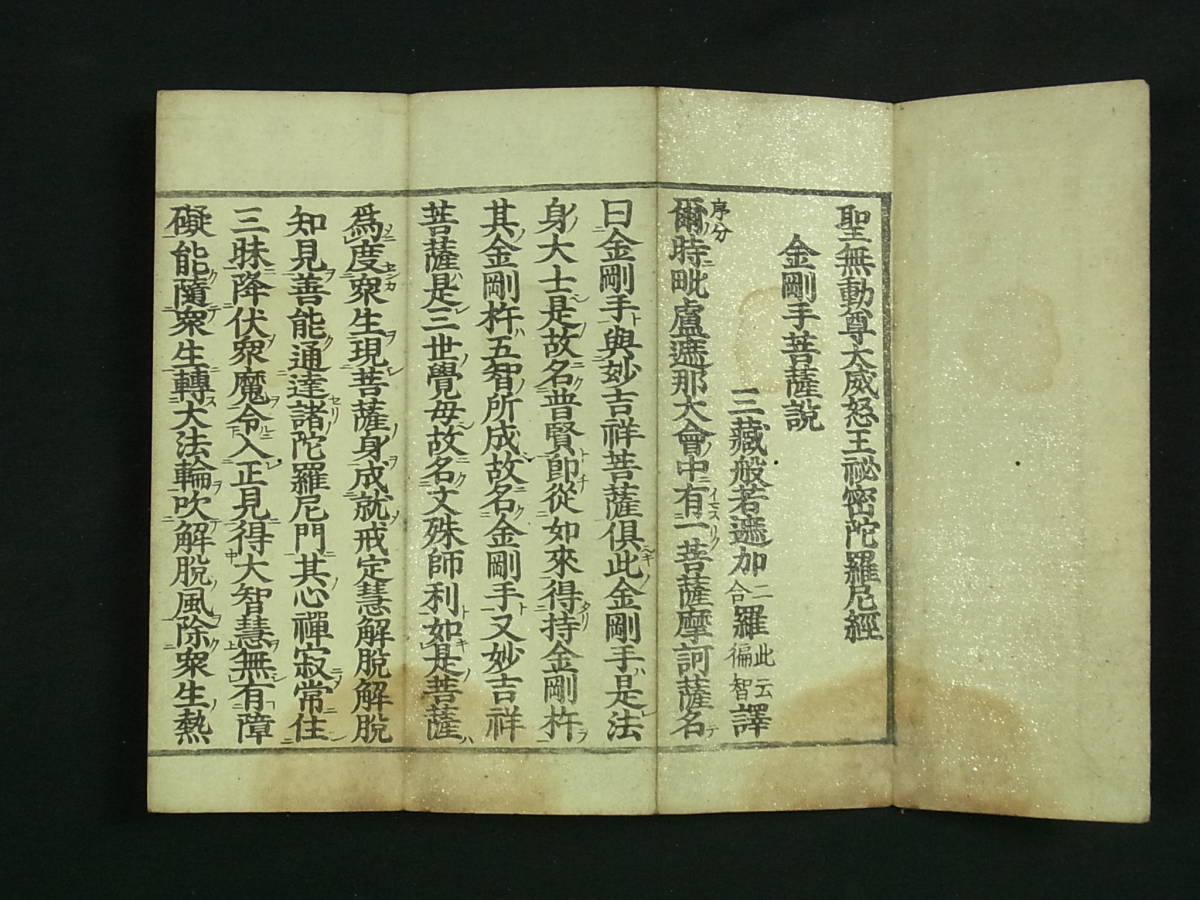 聖無動尊大威怒王祕密陀羅尼經
金剛手菩薩說
三藏般若邐加二合羅此云徧智譯
序分
爾時毗盧遮那大會中有一菩薩摩訶薩名
曰金剛手與妙吉祥菩薩俱此金剛手是法
身大士是故名普賢即從如來得持金剛杵
其金剛杵五智所成故名金剛手又妙吉祥
菩薩是三世覺母故名文殊師利如是菩薩
爲度衆生現菩薩身成就戒定慧解脫解脫
知見善能通達諸陀羅尼門其心禪寂常住
三昧降伏衆魔令入正見得大智慧無有障
礙能隨衆生轉大法輪吹解脫風除衆生熱